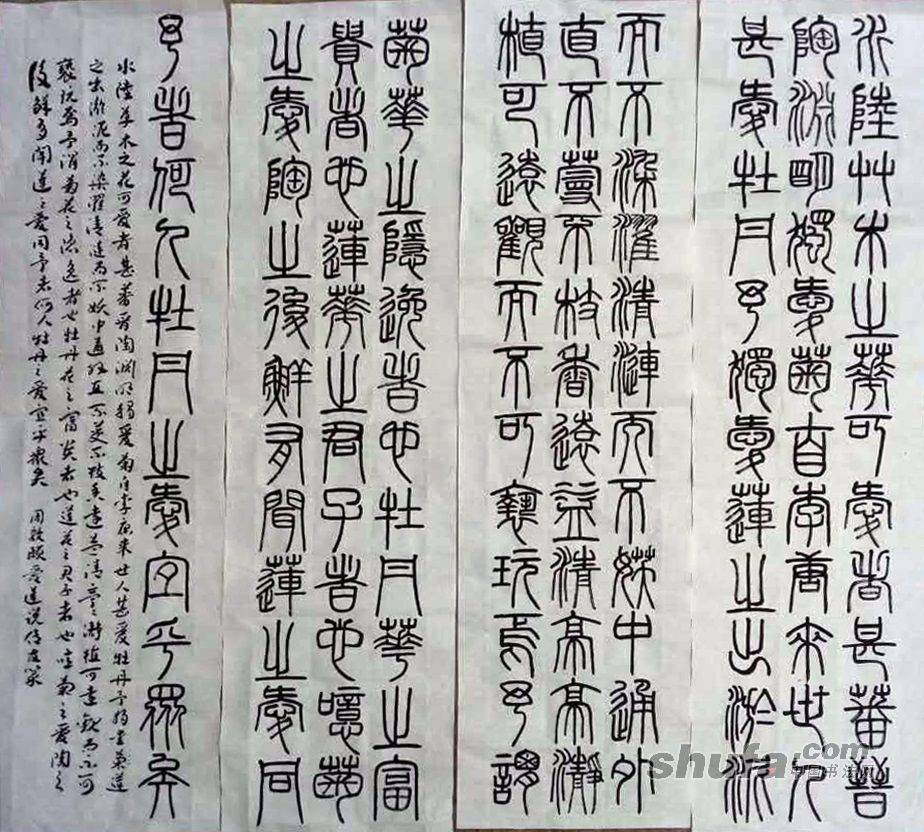 水陸艸木之華可愛者甚蕃晉
陶淵明獨愛菊自李唐來世人
甚愛牡丹予獨愛蓮之出淤泥
而不染濯清漣而不妖中通外
直不蔓不枝香遠益清亭亭瀞
植可遠觀而不可褻玩焉予謂
菊華之隱逸者也牡丹華之富
貴者也蓮華之君子者也噫菊
之愛陶之後鮮有聞蓮之愛同
予者何人牡丹之愛宜乎眾矣
水陸草木之花可愛者甚蕃晋陶渊明独爱菊自李唐来世人甚爱牡丹予独爱莲
之出淤泥而不染濯清涟而不妖中通外直不蔓不枝香远益清亭亭净植可远观而不可
亵玩焉予谓菊花之隐逸者也牡丹花之富贵者也莲花之君子者也噫菊之爱陶之
後鲜有闻莲之爱同予者何人牡丹之爱宜乎众矣 周敦颐爱莲说
shufa.com
中国书法网